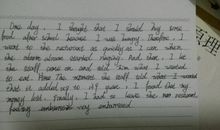 One day, I thought that I should buy some
food after school because I was hungry. Therefore I
went to the restaurant as quickly as I can. when
the alarm sounded. that, I let
the staff come on and tell him what I wanted
to eat. The moment the staff told what I would
that is added up to 49 yuan. I found that my
money lost. Finally, I had to leave the restaurant
very embarrassed
真理